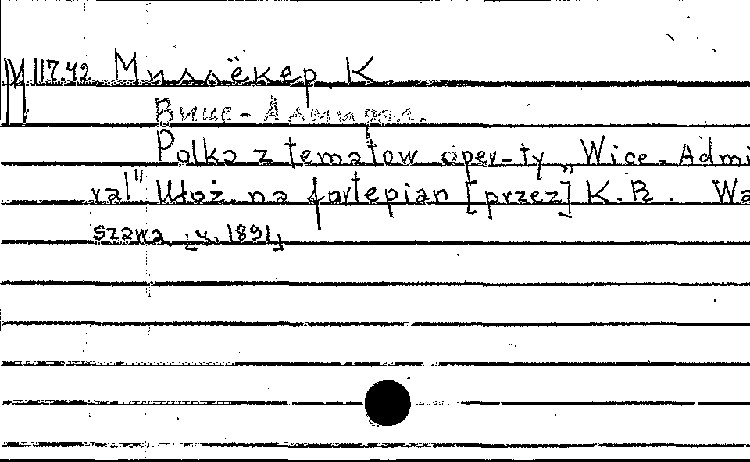 M 117.42 Миллёкер К
Вице-Адмирал.
Polka z tematow oper-ty „Wice-Admi
ral" Ułoż. na fortepian [przez] K.R. Wa
szawa, 1891